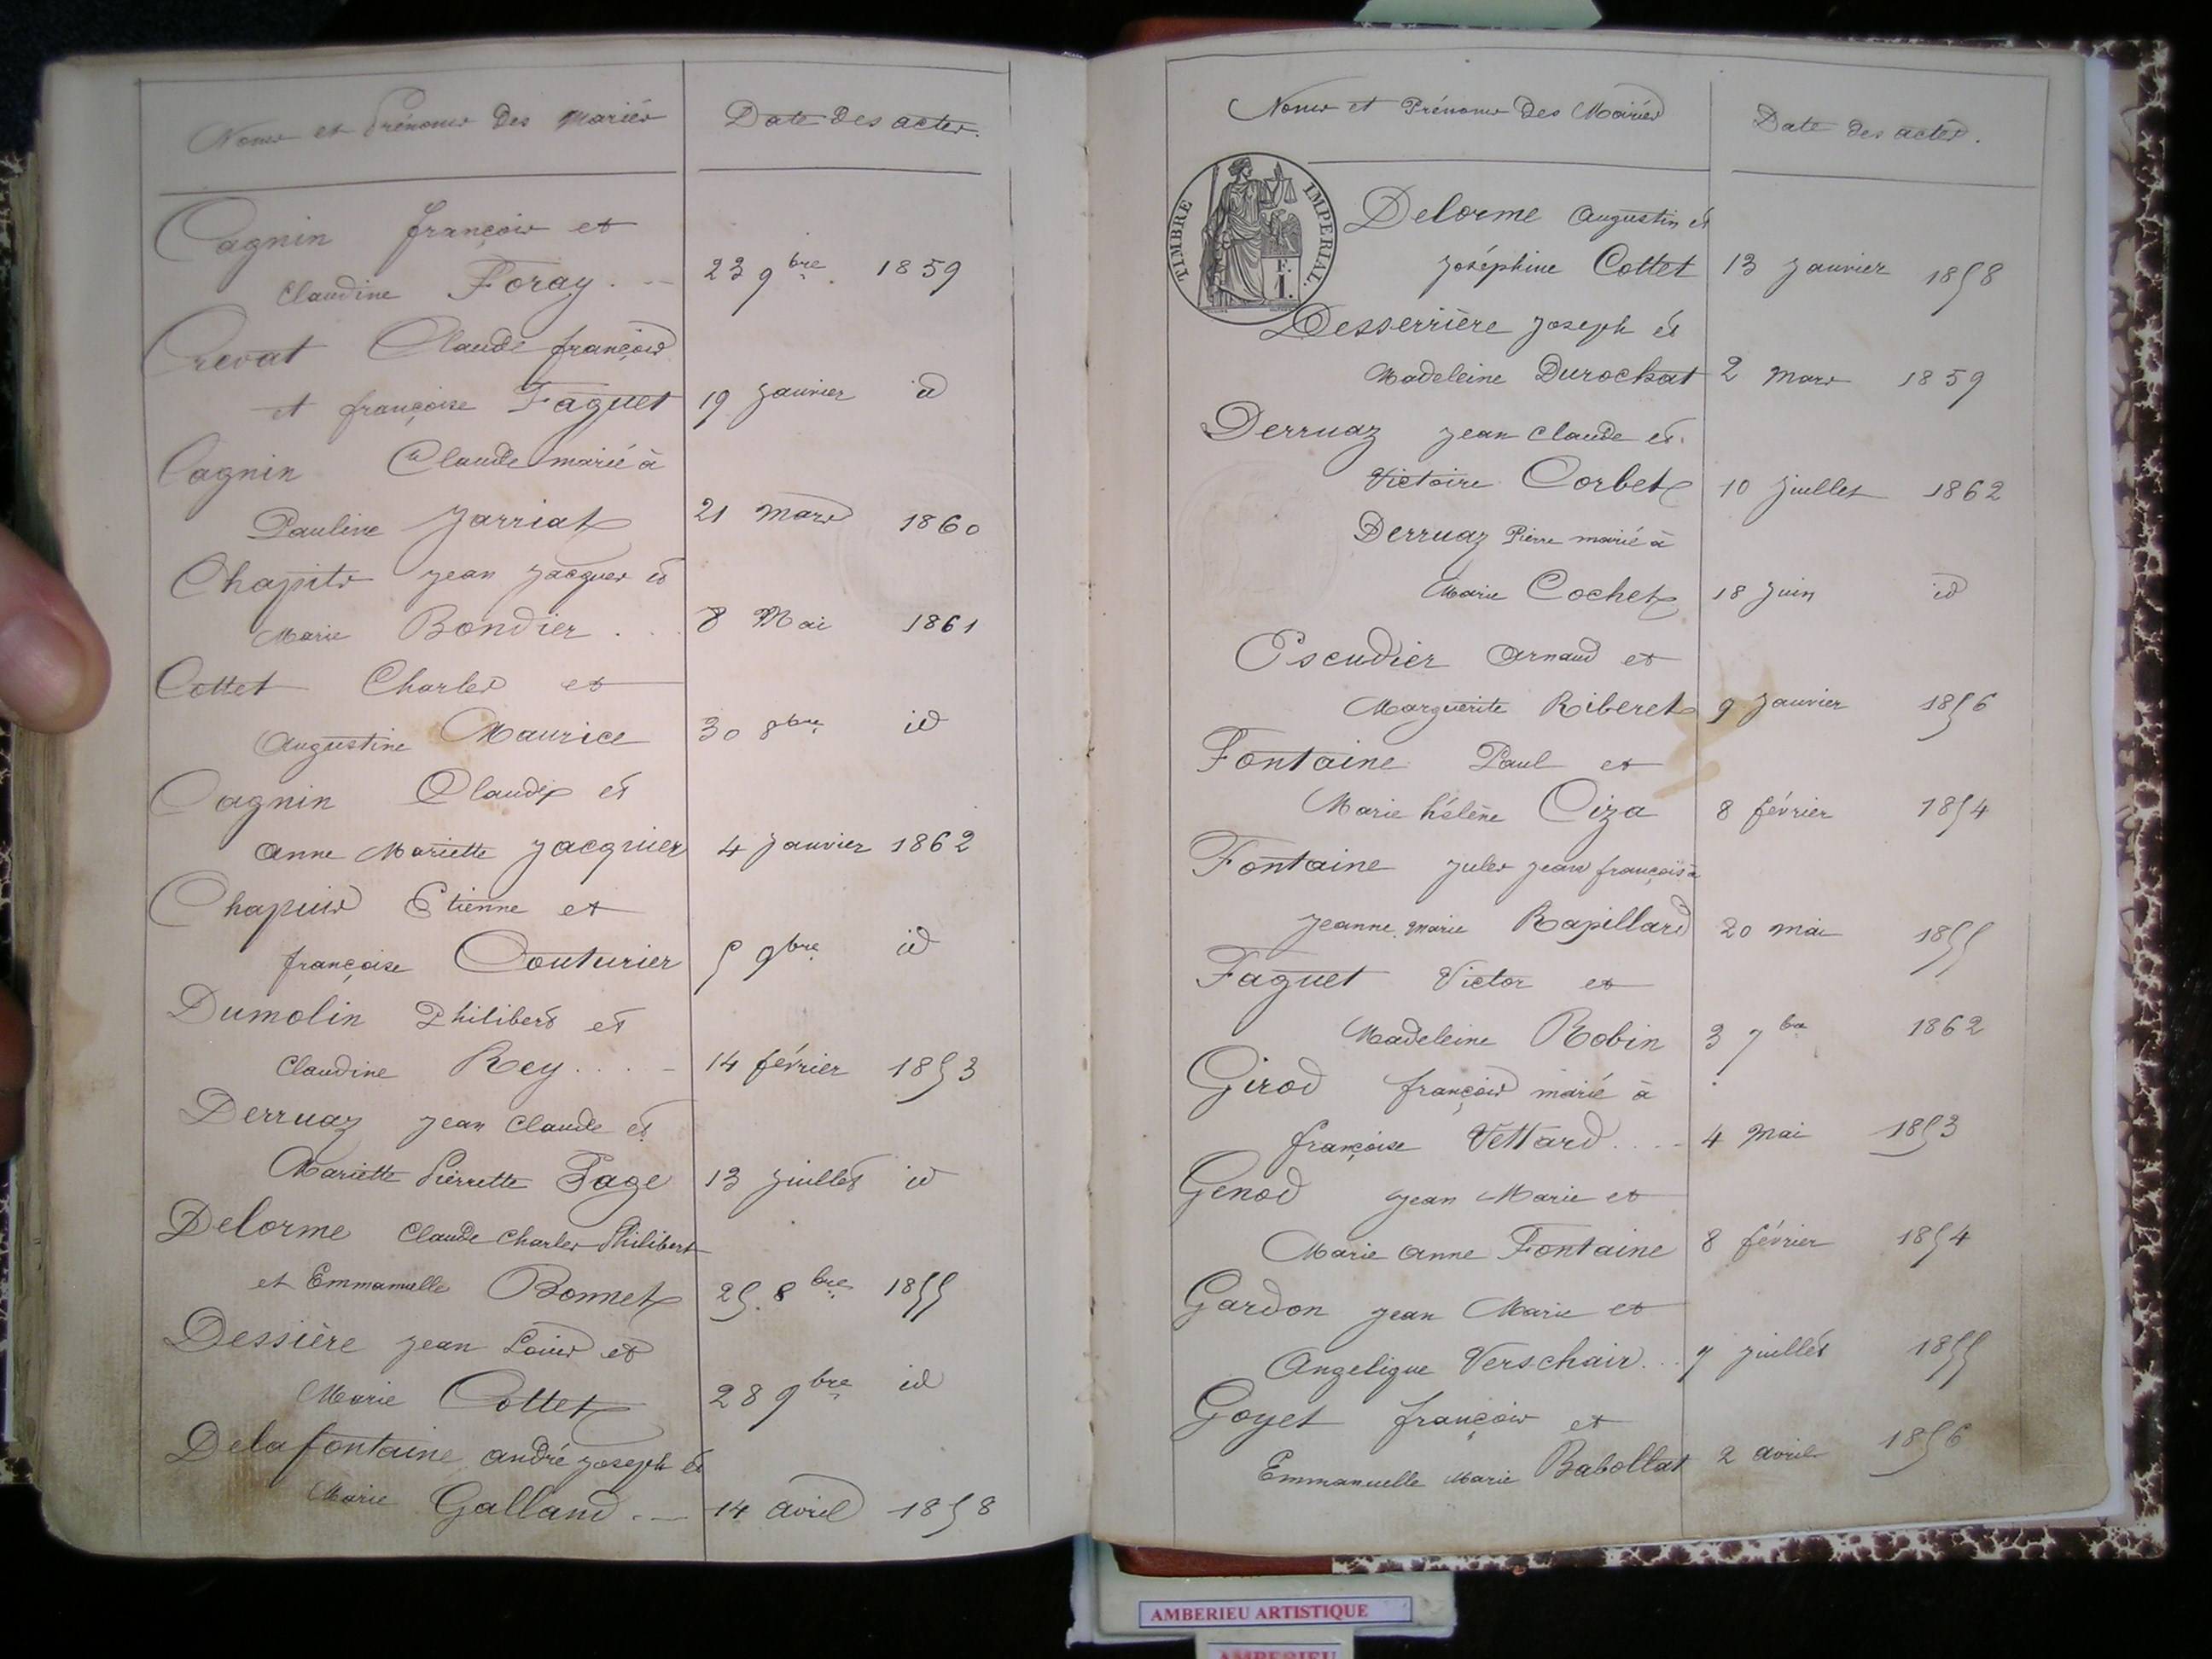 Noms et Prénoms des Mariés
Date des actes.
Cagnin françois et
Claudine Foray. 23 9bre. 1859
Crevat Claude françois
et françoise Faguet 19 Janvier id
Cagnin Claude marié à
Pauline Jarriat 21 Mars 1860
Chapits Jean Jacques et
Marie Bondier . . 8 Mai 1861
Cottet Charles et
Augustine Maurice 30 8bre id
Cagnin Claude et
Anne Mariette Jacquier 4 Janvier 1862
Chapuis Etienne et
françoise Couturier 5 9bre id
Dumolin Philibert et
Claudine Rey . . . - 14 février 1853
Derruaz Jean Claude et
Mariette Pierrette Page 13 Juillet id
Delorme Claude Charles Philibert
et Emmanuelle Bonnet 25. 8bre 1855
Dessière Jean Louis et
Marie Cottet 28 9bre id
Delafontaine andré Joseph et
Marie Galland . — 14 avril 1858
Noms et Prénoms des Mariés
Date des actes.
TIMBRE IMPERIAL.
F.
I.
Delorme Augustin et
Joséphine Cottet 13 Janvier 1858
Desserrière Joseph et
Madeleine Durochat 2 Mars 1859
Derruaz Jean Claude et
Victoire Corbet 10 Juillet 1862
Derruaz Pierre marié à
Marie Cochet 18 Juin id
Escudier Arnaud et
Marguerite Riberet 9 Janvier 1856
Fontaine Paul et
Marie hélène Ciza 8 février 1854
Fontaine Jules Jean françois à
Jeanne Marie Rapillard 20 mai 1855
Faguet Victor et
Madeleine Robin 3 7bre 1862
Girod françois marié à
françoise Vettard . . . - 4 Mai 1853
Genod Jean Marie et
Marie Anne Fontaine 8 février 1854
Gardon Jean Marie et
Angelique Verschair. . . 7 Juillet 1855
Goyet françois et
Emmanuelle Marie Babollat 2 avril 1856
AMBERIEU ARTISTIQUE
AMBERIEU